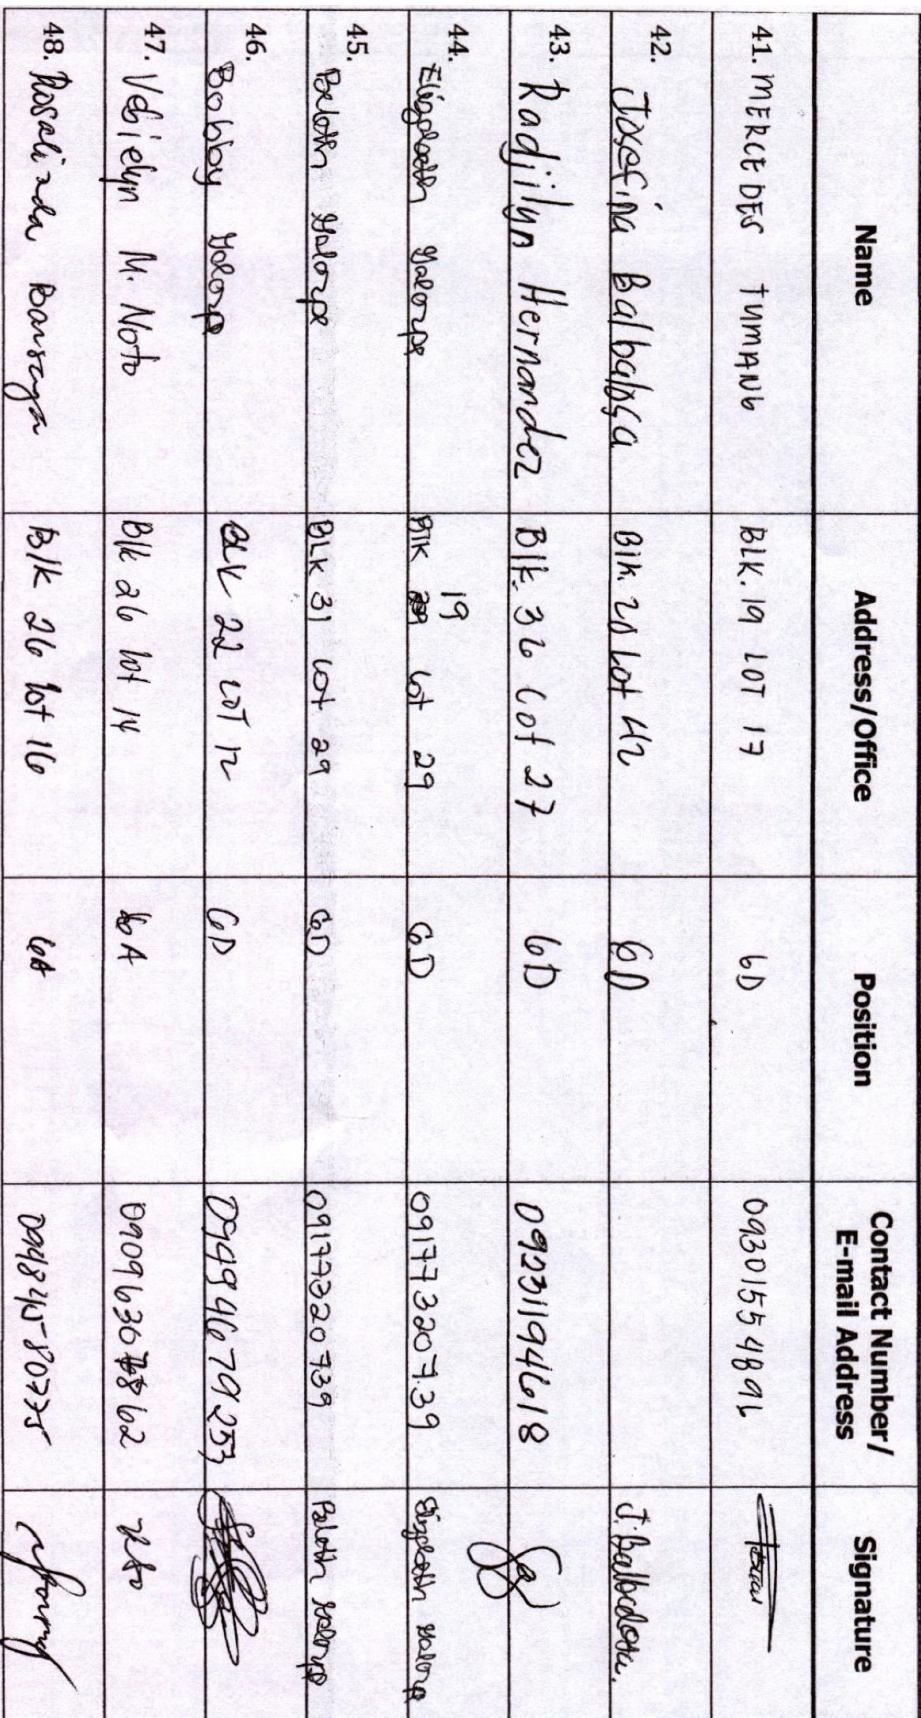 Name Address/Office Position Contact Number/ E-mail Address Signature
41. MERCEDES TUMANG Blk. 19 LOT 17 6D
42. Josefina Balbalosa Blk. 20 Lot 42 6D J. Balbalosa.
43. Radjilyn Hernandez Blk. 36 Lot 27 6D 09231194618
44. Elizabeth Galorpo Blk 19 Lot 29 6D 09177320739 Elizabeth Galorpo
45. Galorpo Blk 31 Lot 29 6D 09177320739 Galorpo
46. Bobboy Galorpo Blk 22 LOT 12 6D 09494679253
47. Vebielyn M. Noto Blk 26 lot 14 6A
48. Rosalinda Blk 26 lot 16 6A